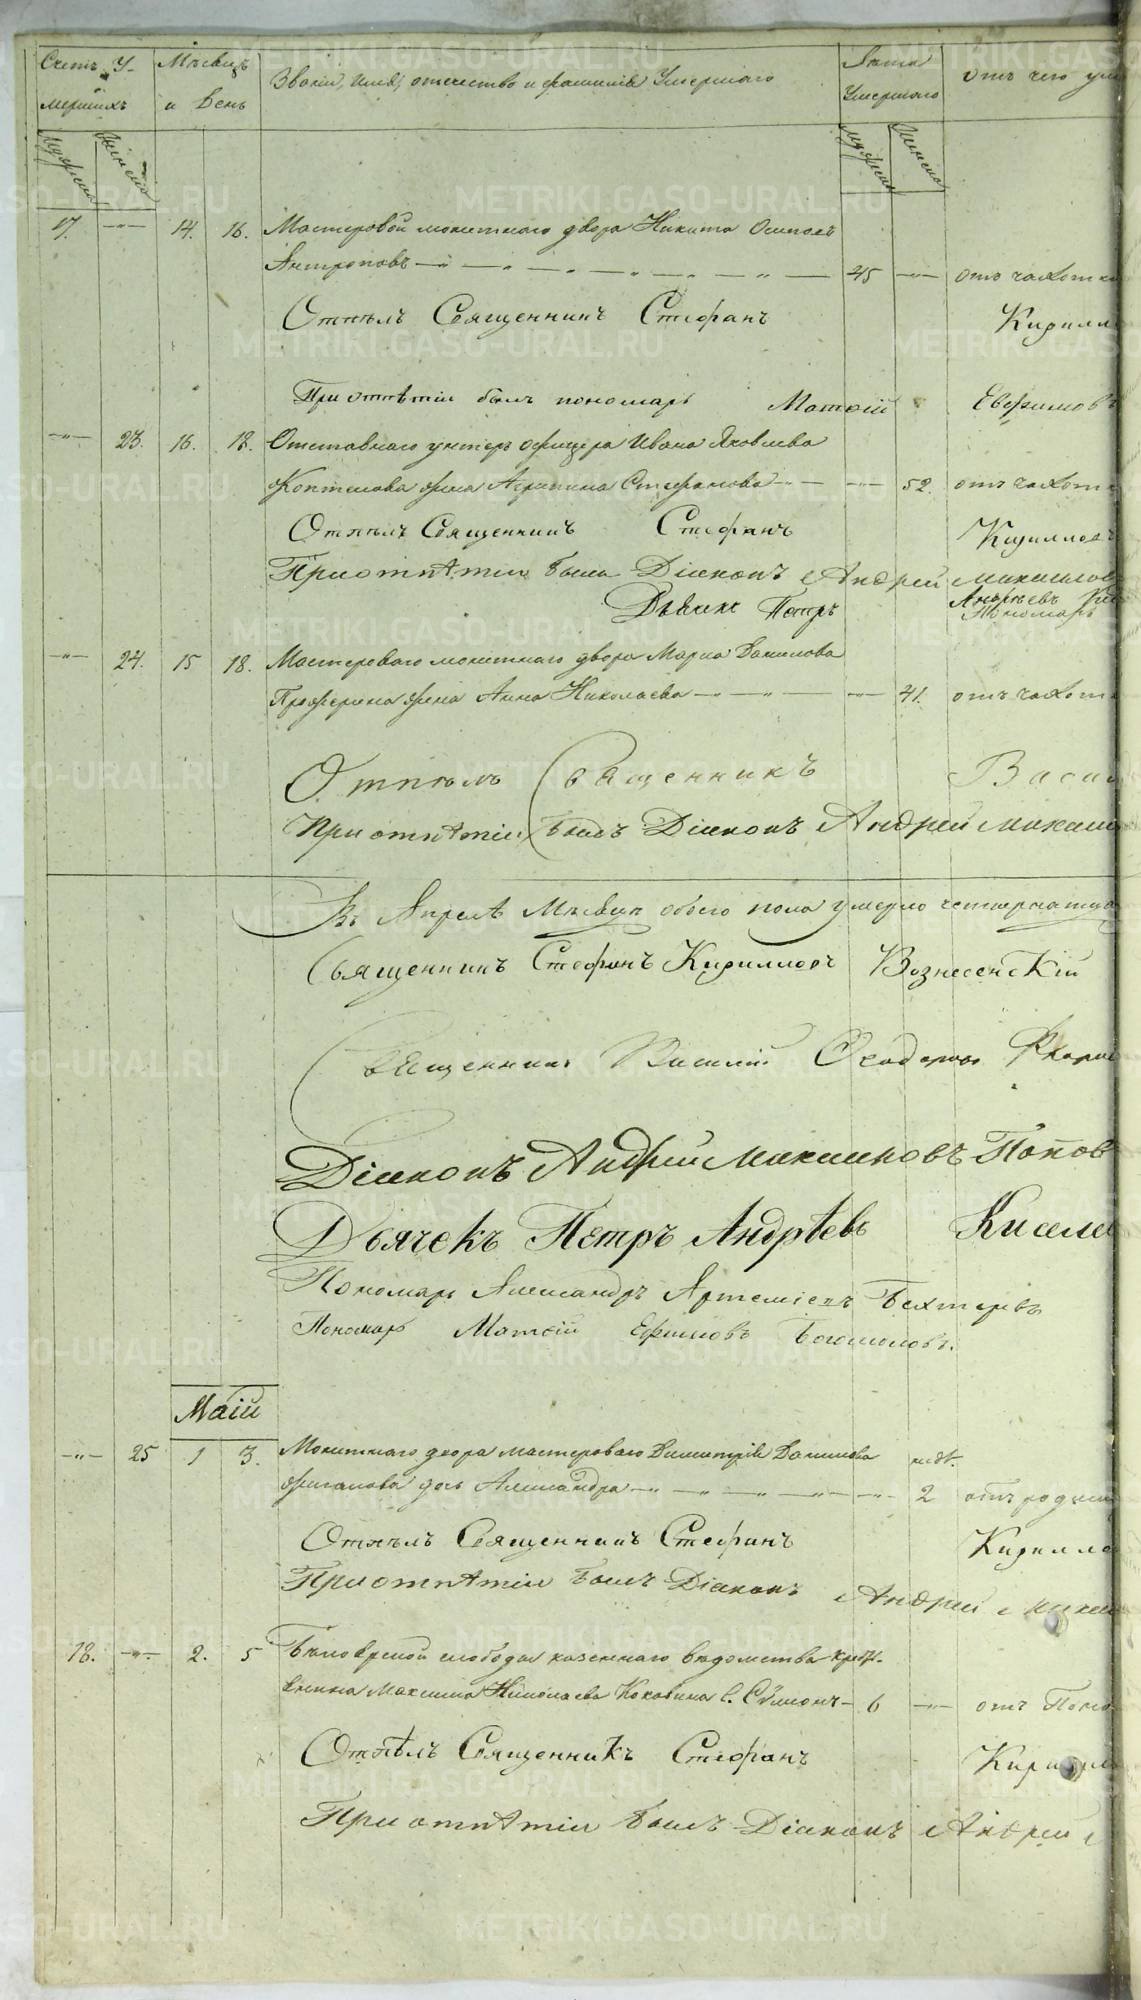 Счетъ У- Мѣсяцъ Званіе, имя, отечество и фамилія Умершаго Лѣта отъ чего уме
мершихъ и День Умершаго
мужеска женска мужеска женска
17. -„- 14. 16. Мастеровой монетнаго двора Никита Осиповъ
Антроповъ 45 -„- отъ чахотки
Отпѣлъ Священникъ Стефанъ Кирилло
При отпѣтіи былъ пономарь Матѳій Евфимовъ
-„- 23. 16. 18. Отставнаго унтеръ офицера Ивана Яковлева
Коптелова жена Агрипина Стефанова -„- 52. отъ чахотк
Отпѣлъ Священникъ Стефанъ Кирилловъ
При отпѣтіи были Діаконъ Андрей Максимов
Дьячикъ Петръ Андрѣевъ Кис
Пономарь
-„- 24. 15 18. Мастероваго монетнаго двора Марка Данилова
жена Анна Николаева -„- 41. отъ чахот
Отпѣлъ Священникъ Васи
При отпѣтіи былъ Діаконъ Андрей Максим
Въ Апрелѣ Мѣсяцѣ обоего пола умерло четырнатца
Священникъ Стефанъ Кирилловъ Вознесенскій
Священникъ Василій Ѳеодоровъ
Діаконъ Андрей Максимовъ Попов
Дьячекъ Петръ Андрѣевъ Киселе
Пономарь Александръ Артеміевъ Бехтеревъ
Пономарь Матѳій Ефимовъ Богомоловъ.
Маій
-„- 25 1 3. Монетнаго двора мастероваго Димитрія Данилова нед.
дочь Александра 2 отъ родим
Отпѣлъ Священникъ Стефанъ Кирилло
При отпѣтіи былъ Діаконъ Андрей Макси
18. -„- 2. 5 слободы казеннаго вѣдомства крест.
Максима Николаева Коковина с. Сѵмеонъ 6 -„- отъ
Отпѣлъ Священникъ Стефанъ Кирилл
При отпѣтіи былъ Діаконъ Андрей
METRIKI.GASO-URAL.RU